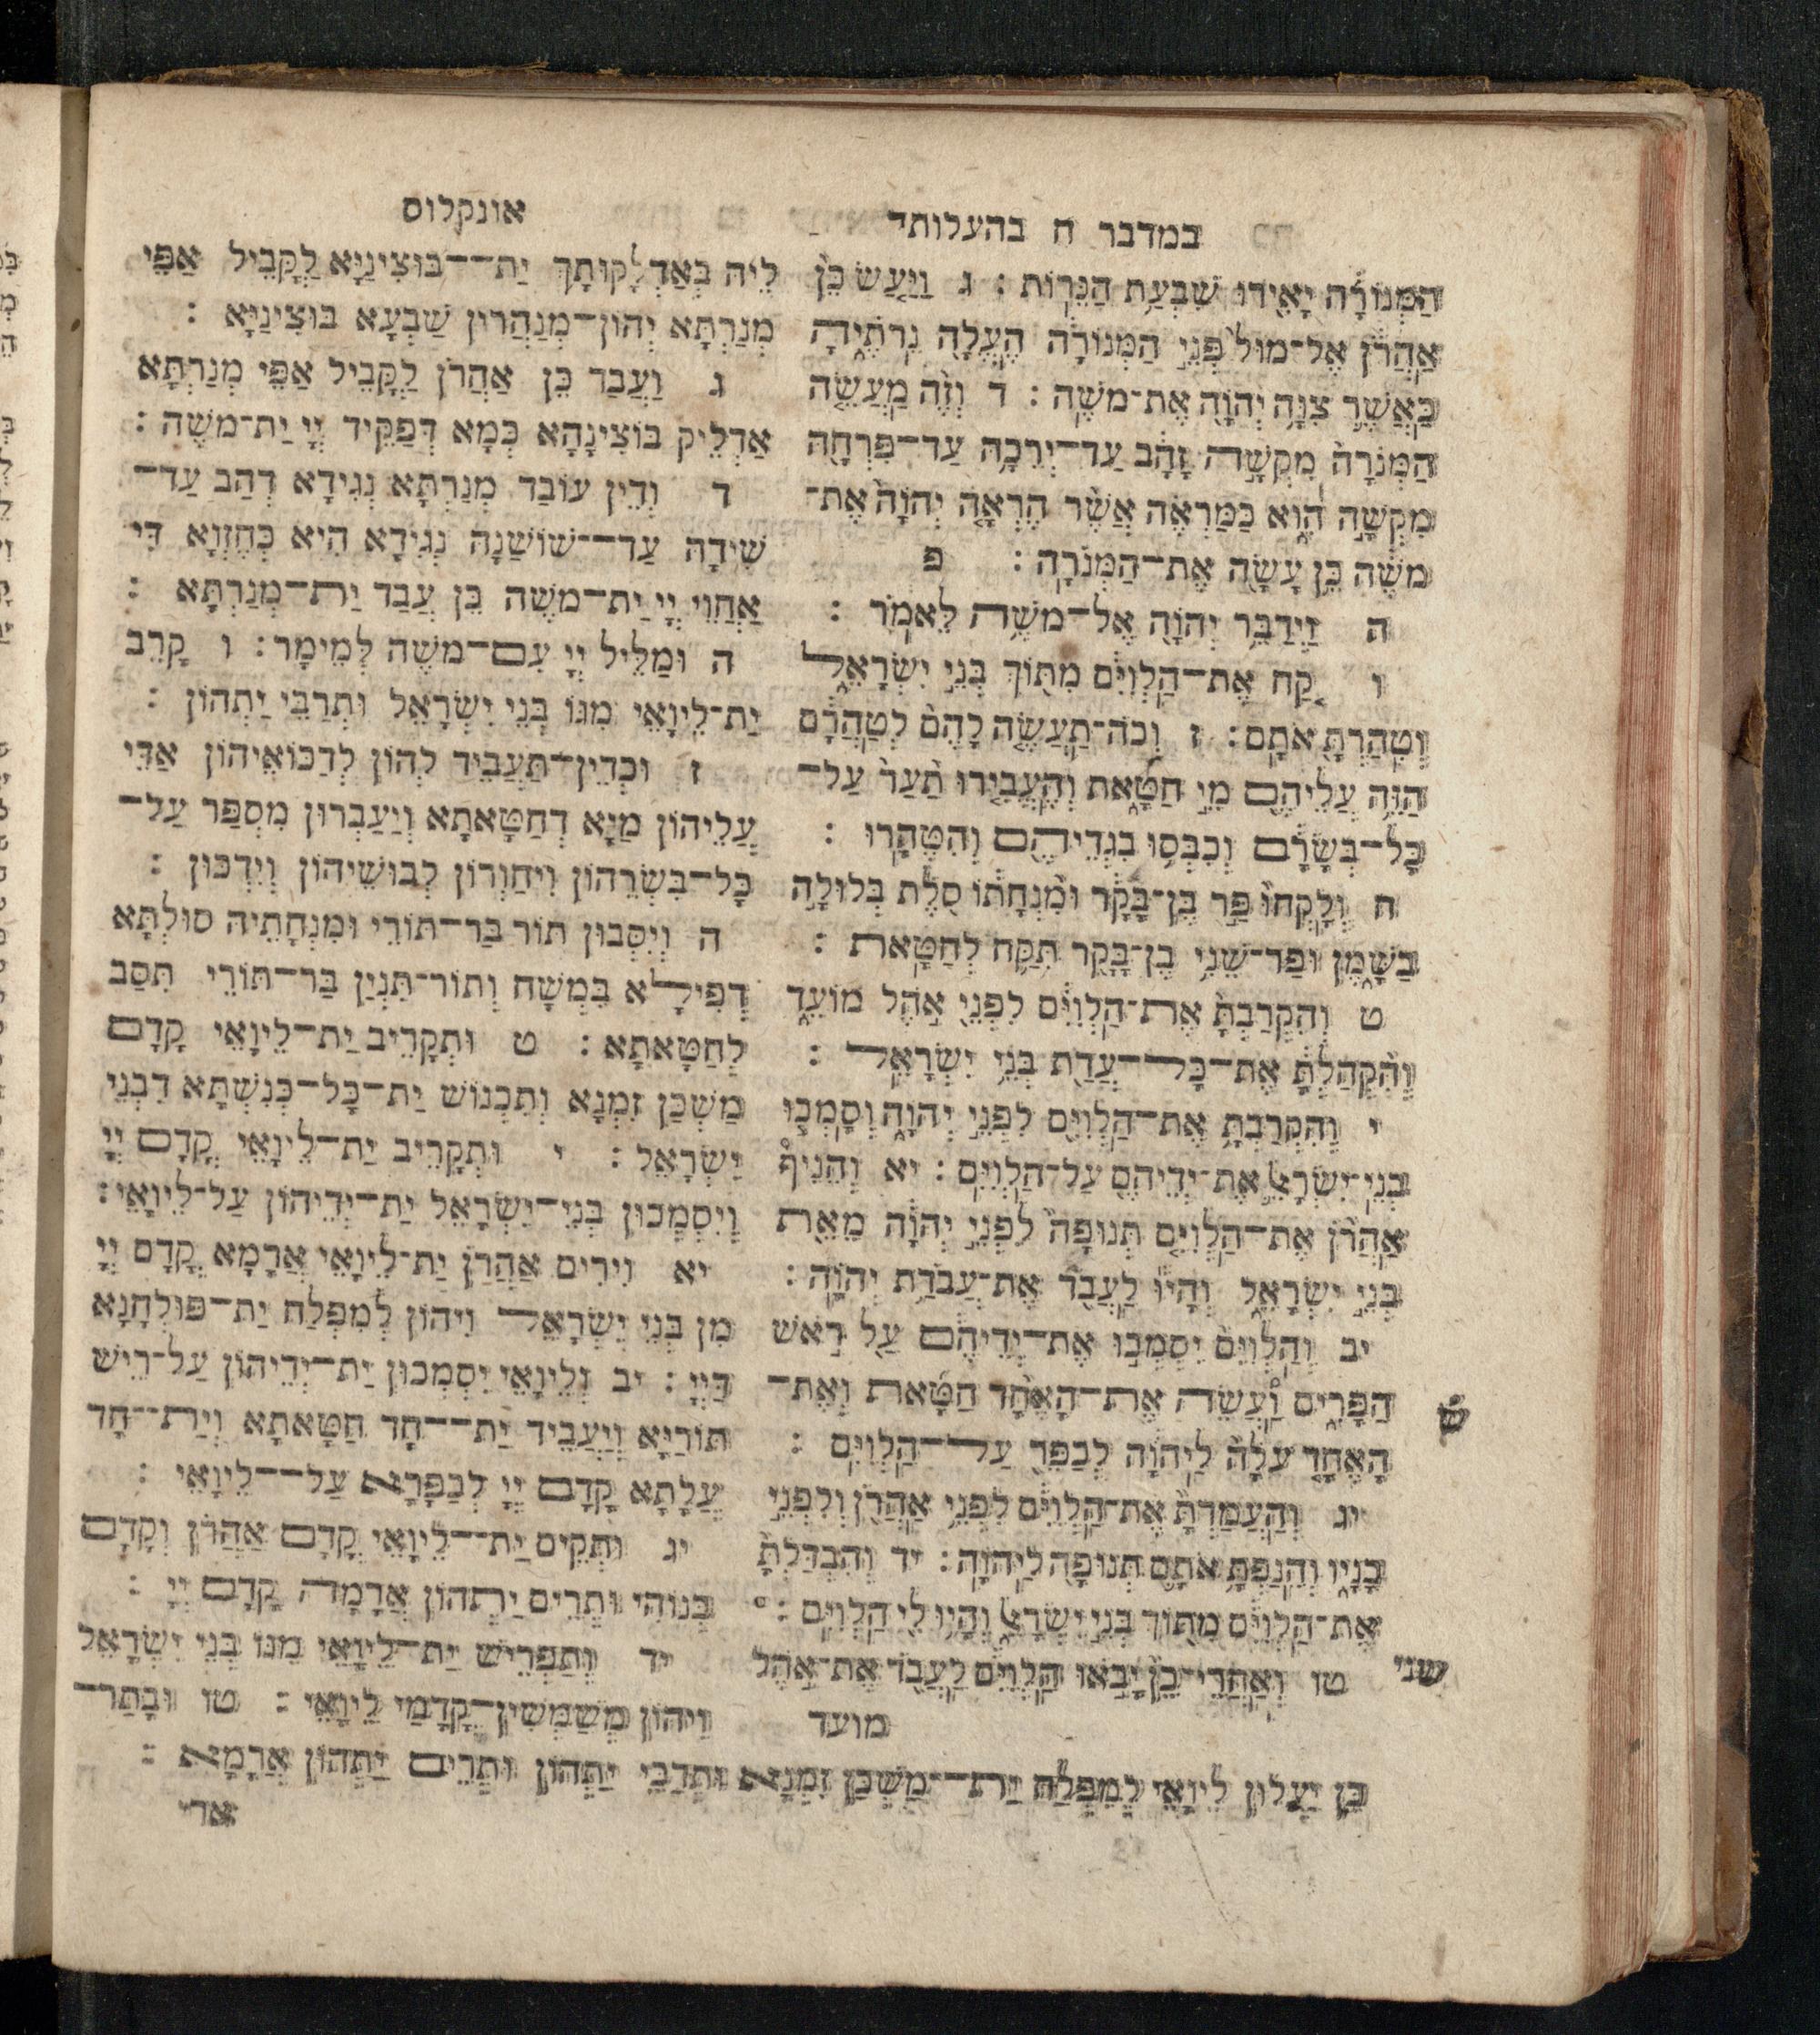 במדבר ח בהעלותך
המְּנוֹרָ֔ה יָאִ֖ירוּ שִׁבְעַ֥ת הַנֵּרֽוֹת : ג וַיַּ֤עַשׂ כֵּן֙
אַהֲרֹ֔ן אֶל־מוּל֙ פְּנֵ֣י הַמְּנוֹרָ֔ה הֶעֱלָ֖ה נֵרֹתֶ֑יהָ
כַּֽאֲשֶׁ֛ר צִוָּ֥ה יְהוָֹ֖ה אֶת־מֹשֶֽׁה : ד וְזֶ֨ה מַעֲשֵׂ֤ה
הַמְּנֹרָה֙ מִקְשָׁ֣ה זָהָ֔ב עַד־יְרֵכָ֥הּ עַד־פִּרְחָ֖הּ
מִקְשָׁ֣ה הִ֑וא כַּמַּרְאֶ֗ה אֲשֶׁ֨ר הֶרְאָ֤ה יְהוָֹה֙ אֶת־
מֹשֶׁ֔ה כֵּ֥ן עָשָׂ֖ה אֶת־הַמְּנֹרָֽה : פ
ה וַיְדַבֵּ֥ר יְהוָֹ֖ה אֶל־מֹשֶׁ֥ה לֵּאמֹֽר :
ו קַ֚ח אֶת־הַלְוִיִּ֔ם מִתּ֖וֹךְ בְּנֵ֣י יִשְׂרָאֵ֑ל
וְטִהַרְתָּ֖ אֹתָֽם : ז וְכֹה־תַעֲשֶׂ֤ה לָהֶם֙ לְטַהֲרָ֔ם
הַזֵּ֥ה עֲלֵיהֶ֖ם מֵ֣י חַטָּ֑את וְהֶעֱבִ֤ירוּ תַ֙עַר֙ עַל־
כָּל־בְּשָׂרָ֔ם וְכִבְּס֥וּ בִגְדֵיהֶ֖ם וְהִטֶּהָֽרוּ :
ח וְלָֽקְחוּ֙ פַּ֣ר בֶּן־בָּקָ֔ר וּמִ֨נְחָת֔וֹ סֹ֖לֶת בְּלוּלָ֣ה
בַשָּׁ֑מֶן וּפַר־שֵׁנִ֥י בֶן־בָּקָ֖ר תִּקַּ֥ח לְחַטָּֽאת :
ט וְהִקְרַבְתָּ֙ אֶת־הַלְוִיִּ֔ם לִפְנֵ֖י אֹ֣הֶל מוֹעֵ֑ד
וְהִ֨קְהַלְתָּ֔ אֶת־כָּל־עֲדַ֖ת בְּנֵ֥י יִשְׂרָאֵֽל :
י וְהִקְרַבְתָּ֥ אֶת־הַלְוִיִּ֖ם לִפְנֵ֣י יְהוָֹ֑ה וְסָמְכ֧וּ
בְנֵֽי־יִשְׂרָאֵ֛ל אֶת־יְדֵיהֶ֖ם עַל־הַלְוִיִּֽם : יא וְהֵנִיף֩
אַהֲרֹ֨ן אֶת־הַלְוִיִּ֤ם תְּנוּפָה֙ לִפְנֵ֣י יְהוָֹ֔ה מֵאֵ֖ת
בְּנֵ֣י יִשְׂרָאֵ֑ל וְהָי֕וּ לַעֲבֹ֖ד אֶת־עֲבֹדַ֥ת יְהוָֹֽה :
יב וְהַלְוִיִּם֙ יִסְמְכ֣וּ אֶת־יְדֵיהֶ֔ם עַ֖ל רֹ֣אשׁ
הַפָּרִ֑ים וַ֠עֲשֵׂה אֶת־הָאֶחָ֨ד חַטָּ֜את וְאֶת־
ש
הָאֶחָ֤ד עֹלָה֙ לַֽיהוָֹ֔ה לְכַפֵּ֖ר עַל־הַלְוִיִּֽם :
יג וְהַעֲמַדְתָּ֙ אֶת־הַלְוִיִּ֔ם לִפְנֵ֥י אַהֲרֹ֖ן וְלִפְנֵ֣י
בָנָ֑יו וְהֵנַפְתָּ֥ אֹתָ֛ם תְּנוּפָ֖ה לַֽיהוָֹֽה : יד וְהִבְדַּלְתָּ֙
אֶת־הַלְוִיִּ֔ם מִתּ֖וֹךְ בְּנֵ֣י יִשְׂרָאֵ֑ל וְהָ֥יוּ לִ֖י הַלְוִיִּֽם :
שני טו וְאַֽחֲרֵי־כֵן֙ יָבֹ֣אוּ הַלְוִיִּ֔ם לַעֲבֹ֖ד אֶת־אֹ֣הֶל
מועד
אונקלוס
לֵיהּ בְּאַדְלָקוּתָךְ יַת־בּוּצִינַיָּא לָקֳבֵיל אַפֵּי
מְנַרְתָּא יְהוֹן־מְנַהֲרִין שַׁבְעָא בּוּצִינַיָּא :
ג וַעֲבַד כֵּן אַהֲרֹן לָקֳבֵיל אַפֵּי מְנַרְתָּא
אַדְלֵיק בּוֹצִינָהָא כְּמָא דְּפַקֵּיד יְיָ יַת־משֶׁה :
ד וְדֵין עוֹבַד מְנַרְתָּא נְגִידָא דְהַב עַד־
שִׁידָהּ עַד־שׁוֹשַׁנָּהּ נְגִידָא הִיא כְּחֶזְוָא דִּי
אַחֲוֵי יְיָ יַת־משֶׁה כֵּן עֲבַד יַת־מְנַרְתָּא :
ה וּמַלֵּיל יְיָ עִם־משֶׁה לְמֵימָר : ו קָרֵב
יַת־לֵיוָאֵי מִגּוֹ בְּנֵי יִשְׂרָאֵל וּתְרַבֵּי יַתְהוֹן :
ז וּכְדֵין־תַּעֲבֵיד לְהוֹן לְדַכּוֹאֵיהוֹן אַדֵּי
עֲלֵיהוֹן מַיָּא דְחַטָּאתָא וְיַעַבְּרוּן מִסְפַּר עַל־
כָּל־בִּשְׂרֵהוֹן וִיחַוְּרוּן לְבוּשֵׁיהוֹן וְיִדְכּוּן :
ה וְיִסְּבוּן תּוֹר בַּר־תּוֹרֵי וּמִנְחָתֵיהּ סוּלְתָּא
דְּפִילָא בִמְשָׁח וְתוֹר־תִּנְיָן בַּר־תּוֹרֵי תִּסַּב
לְחַטָּאתָא : ט וּתְקָרֵיב יַת־לֵיוָאֵי קֳדָם
מַשְׁכַּן זִמְנָא וְתִכְנוֹשׁ יַת־כָּל־כְּנִשְׁתָּא דִבְנֵי
יִשְׂרָאֵל : י וּתְקָרֵיב יַת־לֵיוָאֵי קֳדָם יְיָ
וְיִסְמְכוּן בְּנֵי־יִשְׂרָאֵל יַת־יְדֵיהוֹן עַל־לֵיוָאֵי :
יא וִירִים אַהֲרֹן יַת־לֵיוָאֵי אֲרָמָא קֳדָם יְיָ
מִן בְּנֵי יִשְׂרָאֵל וִיהוֹן לְמִפְלַח יַת־פּוּלְחָנָא
דַּיְיָ : יב וְלֵיוָאֵי יִסְמְכוּן יַת־יְדֵיהוֹן עַל־רֵישׁ
תּוֹרַיָּא וְיַעֲבֵיד יַת־חָד חַטָּאתָא וְיַת־חָד
עֲלָתָא קֳדָם יְיָ לְכַפָּרָא עַל־לֵיוָאֵי :
יג וּתְקֵים יַת־לֵיוָאֵי קֳדָם אַהֲרֹן וּקְדָם
בְּנוֹהִי וּתְרֵים יַתְהוֹן אֲרָמָה קֳדָם יְיָ :
יד וְתַפְרֵישׁ יַת־לֵיוָאֵי מִגּוֹ בְּנֵי יִשְׂרָאֵל
וִיהוֹן מְשַׁמְּשִׁין־קֳדָמַי לֵיוָאֵי : טו וּבָתַר־
כֵּן יַעֲלוּן לֵיוָאֵי לְמִפְלַח יַת־מַשְׁכַּן זִמְנָא וּתְדַכֵּי יַתְהוֹן וּתְרֵים יַתְהוֹן אֲרָמָא :
ארי